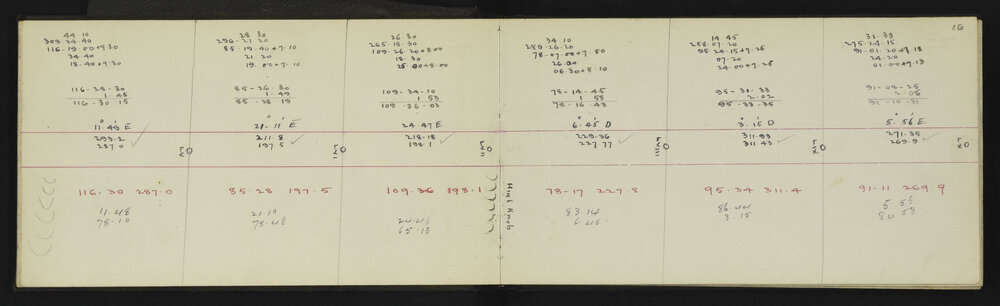 16
44 10
309·24·40
116·19·00+9·30
34·40
18·40+9·30
116-28-30
1·45
116-30·15
11·49 E
293.2
287.0
116-30 287.0
11.48
78.10
28 30
296-21 20
85·19·40+7·10
21·20
19·00+7·10
85-26-30
1·49
85-28-19
21-11 E
211.8
197.5
85-28 197.5
21.10
26 30
265-18-30
109·26·20+8·00
18·30
109-34-10
1 53
109-36-03
24-47 E
218.18
198.1
109-36 198-1
24.46
65 13
Hogs Knob
34 10
289·26·20
78-07 00+7·50
26·00
06·30+8·10
78-14-45
1 58
78-16-43
6·45 D
229.36
227 77
78-17 227.8
83.14
6.45
14 45
258·07·20
95·24·15+7·25
07·20
24·00+7·25
95-31-33
2·02
95-33-35
3·15 D
311.93
311.43
95·34 311.4
86.44
3 15
31-35
275-24 15
91-01·20+7 18
24·20
01·00+7·13
91-08-25
2-06
91-10-31
5·56 E
271.35
269.9
91-11 269.9
5 55
84 03